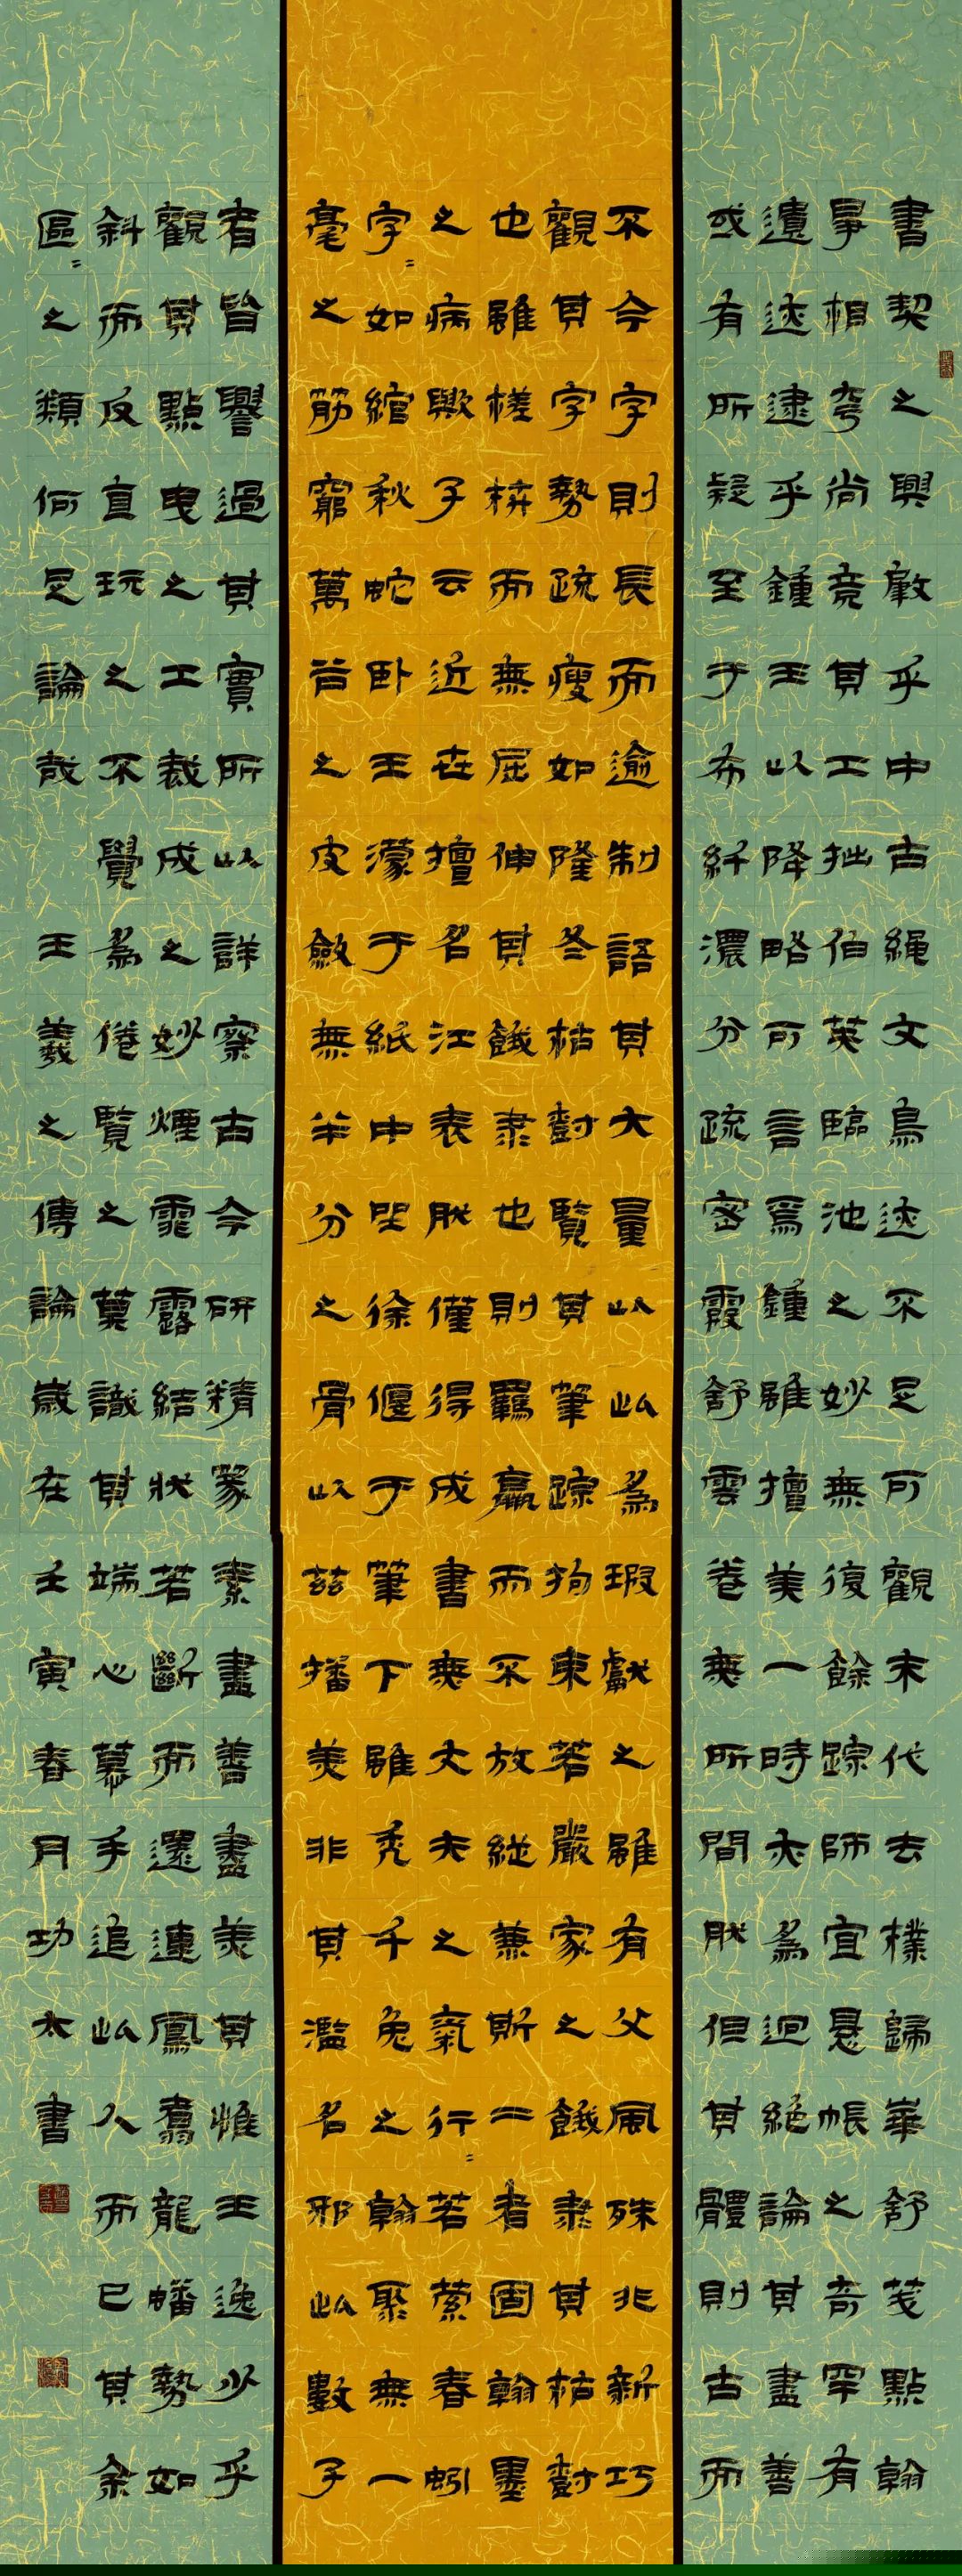 書契之興肇乎中古繩文鳥迹不足可觀末代去樸歸華舒笺點翰
爭相夸尚竞其工拙伯英臨池之妙無復餘踪師宜悬帳之奇罕有
遺迹逮乎鍾王以降略可言焉鍾雖擅美一時亦為迥絕論其盡善
或有所疑至于布纤濃分疏密霞舒雲卷無所間然但其體則古而
不今字則長而逾制語其大量以此為瑕獻之雖有父風殊非新巧
觀其字勢疏瘦如隆冬枯樹覽其筆踪拘束若嚴家之餓隸其枯樹
也雖槎枿而無屈伸其餓隸也則羈羸而不放縱兼斯二者固翰墨
之病歟子云近世擅名江表然僅得成書無丈夫之氣行〻若萦春蚓
字〻如綰秋蛇卧王濛于紙中坐徐偃于筆下雖秃千兔之翰聚無一
毫之筋窮萬谷之皮斂無半分之骨以兹播美非其濫名邪此數子
者皆譽過其實所以詳察古今研精篆素盡善盡美其惟王逸少乎
觀其點曳之工裁成之妙煙霏露結狀若斷而還連鳳翥龍蟠勢如
斜而反直玩之不覺為倦覽之莫識其端心慕手追此人而已其余
區〻之類何足論哉 王羲之傳論歲在壬寅春月功太書